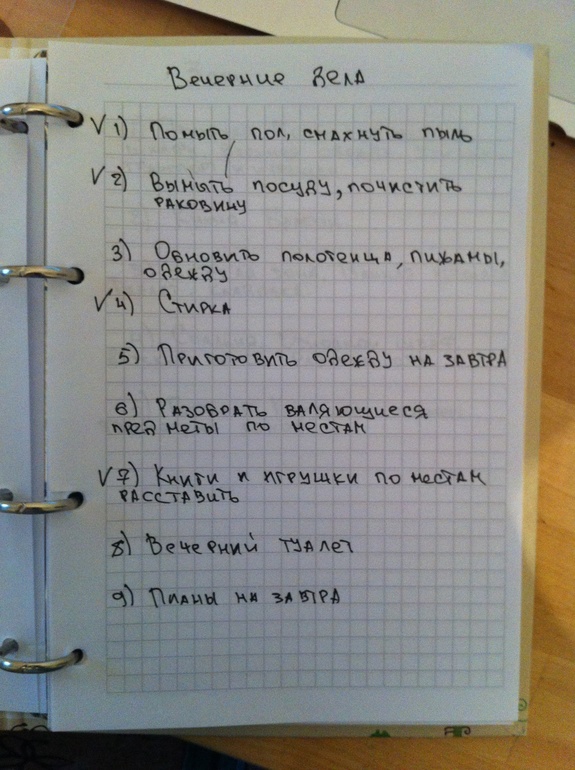 Вечерние дела
√ 1) Помыть пол, смахнуть пыль
√ 2) Вымыть посуду, почистить
раковину
3) Обновить полотенца, пижамы,
одежду
√ 4) Стирка
5) Приготовить одежду на завтра
6) Разобрать валяющиеся
предметы по местам
√ 7) Книги и игрушки по местам
расставить
8) Вечерний туалет
9) Планы на завтра